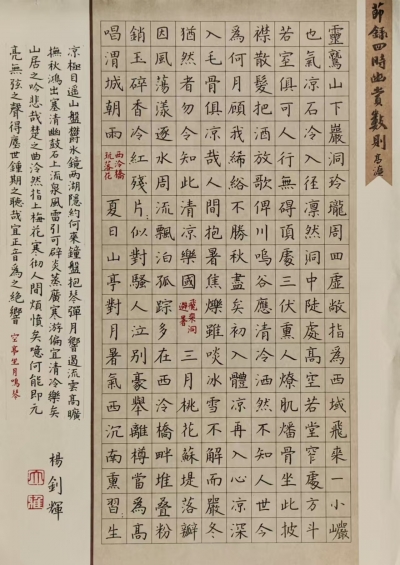 節錄四時幽賞數則 高濂
靈鷲山下巖洞玲瓏周四虛敞指為西域飛來一小巘
也氣涼石冷入徑凜然洞中陡處高空若堂窄處方斗
若室俱可人行無礙頂處三伏熏人燎肌燔骨坐此披
襟散髮把酒放歌俾川鳴谷應清冷洒然不知人世今
為何月顧我絺綌不勝秋盡矣初入體涼再入心涼深
入毛骨俱涼哉人間抱暑焦爍雖啖冰雪不解而嚴冬
猶然者勿令知此清涼樂國 飛來洞避暑 三月桃花蘇堤落瓣
因風蕩漾逐水周流飄泊孤踪多在西泠橋畔堆疊粉
銷玉碎香冷紅殘片似對騷人泣別豪舉離樽當為高
唱渭城朝雨 西泠橋玩落花 夏日山亭對月暑氣西沉南熏習生
涼極目遙山盤鬱冰鏡兩湖隱約何來鐘磬把琴彈月響遏流雲高曠
撫秋鴻出塞清幽鼓石上流泉風雷引可避炎蒸廣寒游偏宜清冷樂矣
山居之吟悲哉楚之曲泠然指上梅花寒徹人間煩憒矣噫何能即元
亮無弦之聲得塵世鍾期之聽哉宜正音為之絕響 空亭坐月鳴琴
楊釗輝